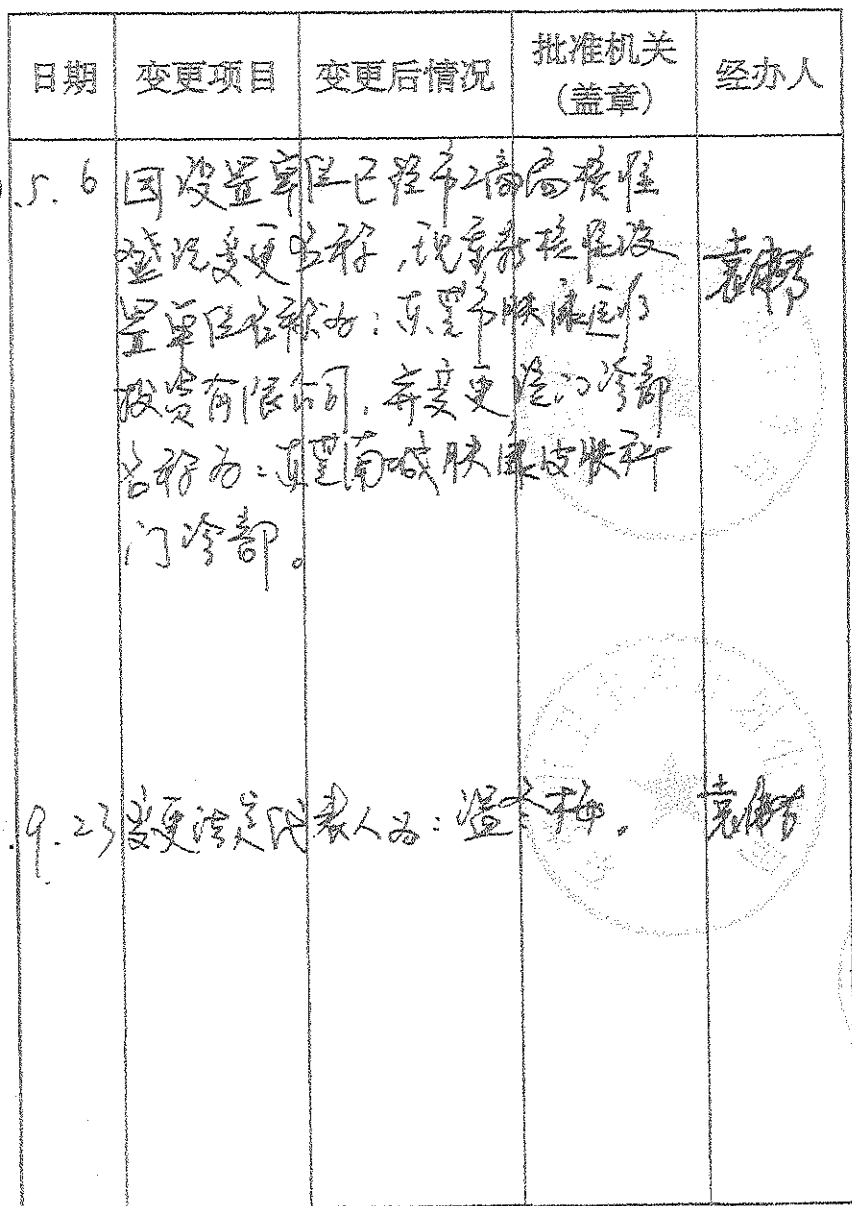 日期 变更项目 变更后情况 批准机关 经办人
(盖章)
5. 6 因设置单位已经市工商局核准
登记变更名称,现重新核准设
置单位名称为:东莞市肤康医疗
投资有限公司,并变更该门诊部
名称为:东莞南城肤康皮肤科
门诊部。
9. 23 变更法定代表人为:温冬梅。